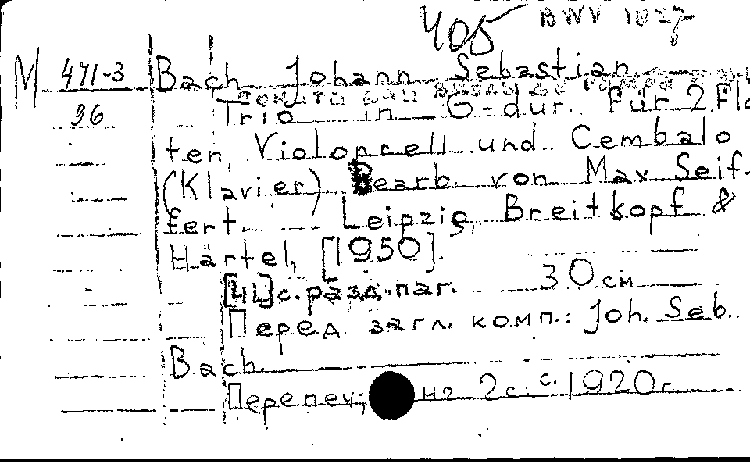 405 BWV 1027
M 471-3 Bach Johann Sebastian
96 Trio in G-dur. Für 2 Flö
ten, Violoncell und Cembalo
(Klavier) Bearb. von Max Seif-
fert. Leipzig, Breitkopf &
Härtel, [1950].
[41] с. разд. паг. 30 см
Перед загл. комп.: Joh. Seb.
Bach.
Перепеч. 2 с. 1920 г